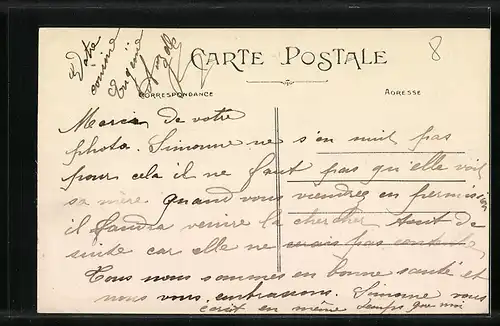 Votre
cousine
Eugénie
CARTE POSTALE
8
CORRESPONDANCE
ADRESSE
Merci de votre
photo. Simonne ne s'en nuit pas
pour cela il ne faut pas qu'elle voit
sa mère quand vous viendrez en permission
il faudra venire la chercher tout de
suite car elle ne serais pas contente
Tous nous sommes en bonne santé et
nous vous embrassons. Simonne vous
écrit en même temps que moi